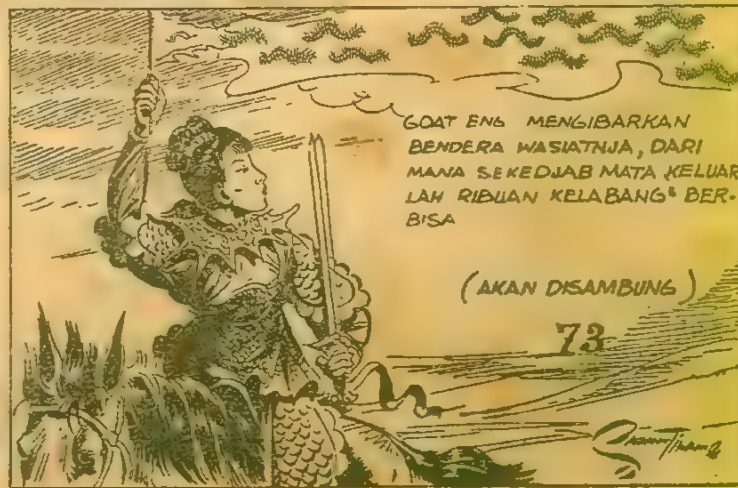 GOAT ENG MENGIBARKAN
BENDERA WASIATNJA, DARI
MANA SEKEDJAB MATA KELUAR
LAH RIBUAN KELABANG² BER-
BISA
(AKAN DISAMBUNG)
73